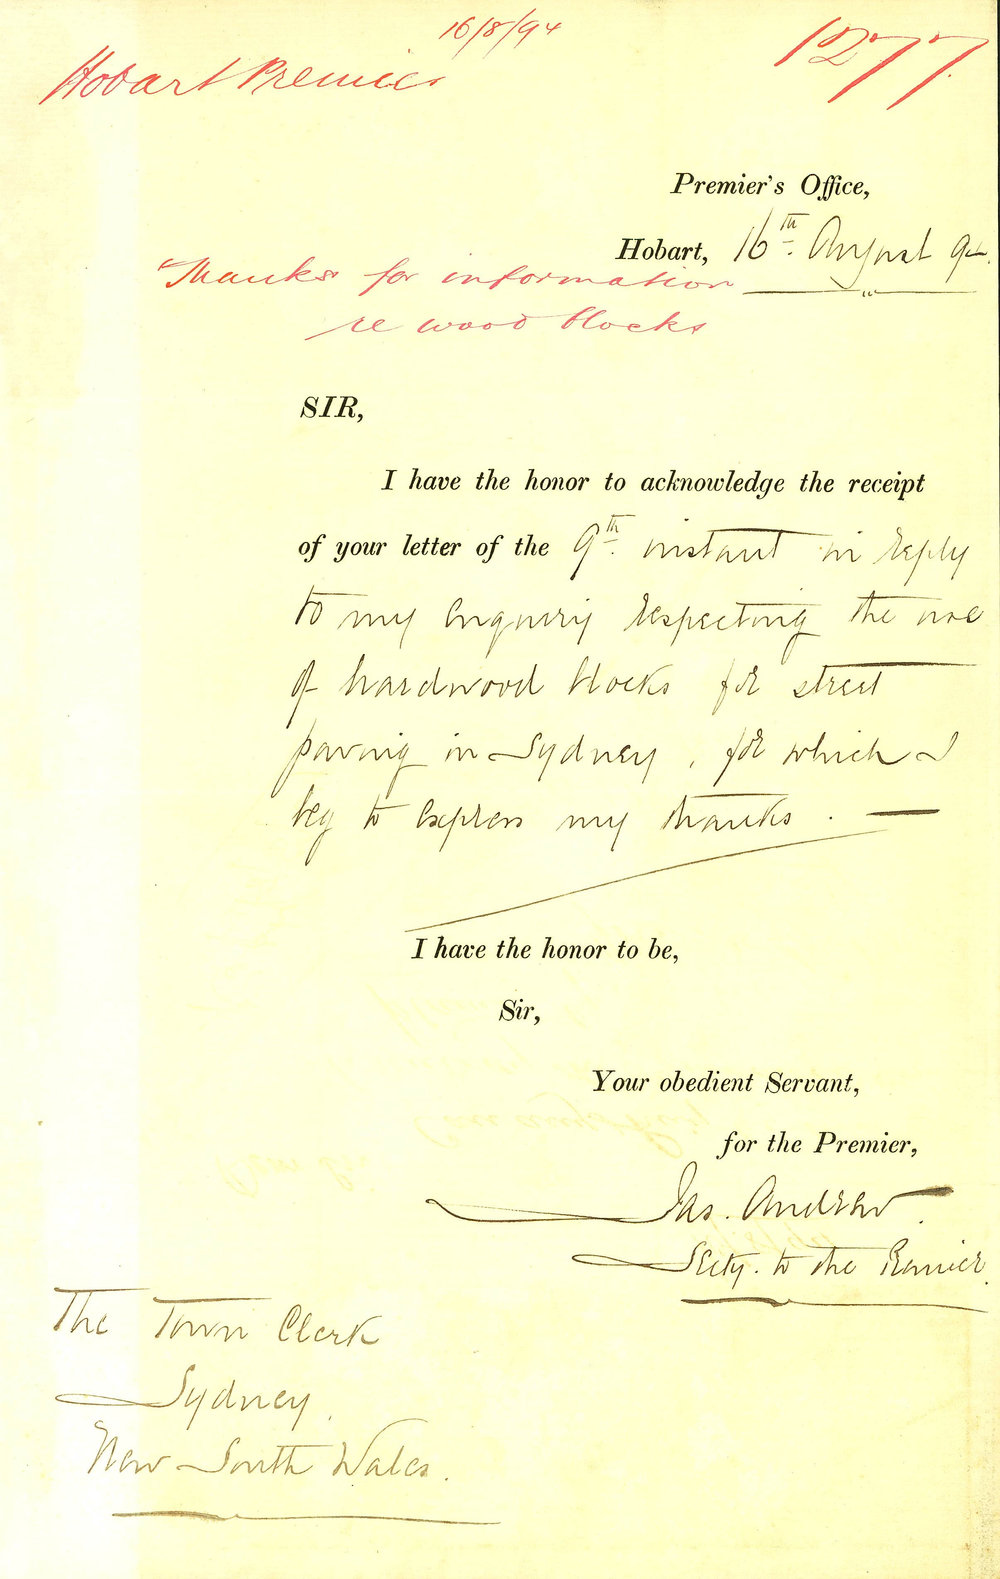 16/8/94
1277.
Hobart Premier
Premier's Office,
Hobart, 16th August 94.
Thanks for information
re wood blocks
SIR,
I have the honor to acknowledge the receipt
of your letter of the 9th. instant in reply
to my enquiry respecting the use
of hardwood blocks for street
paving in Sydney, for which I
beg to express my thanks. —
I have the honor to be,
Sir,
Your obedient Servant,
for the Premier,
Jas. Andrew.
Secty. to the Premier.
The Town Clerk
Sydney.
New South Wales.